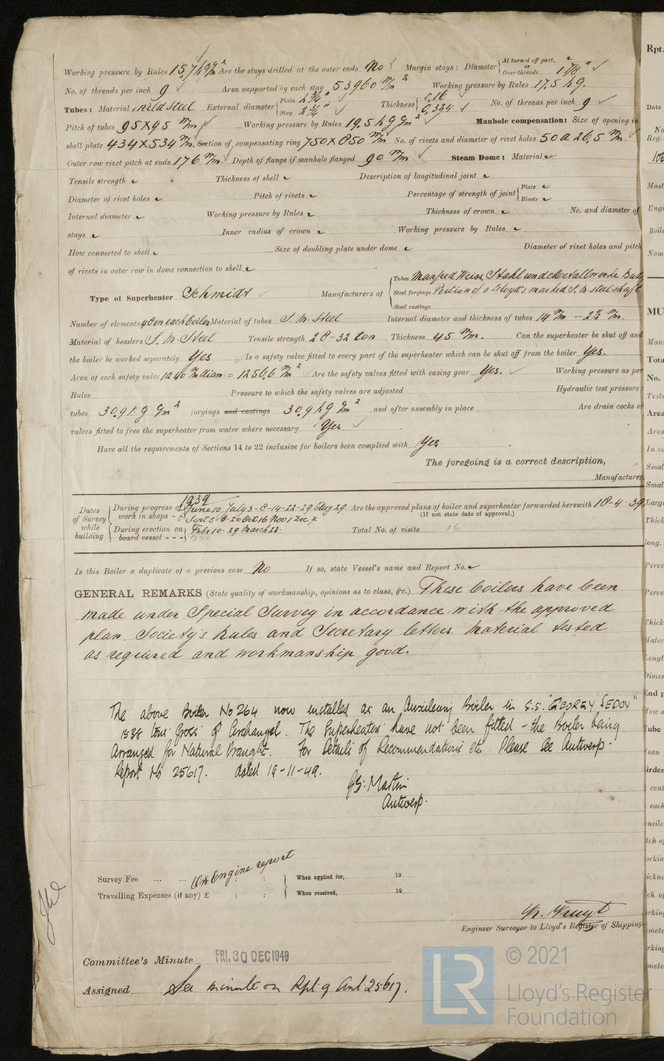 Working pressure by Rules 15,7 Are the stays drilled at the outer ends No Margin stays: Diameter { At turned off part, or Over threads 1 7/8"
No. of threads per inch 9 Area supported by each stay 53960 m/m2 Working pressure by Rules 17.5 kg.
Tubes: Material mild steel External diameter { Plain 2 3/4" Stay 2 3/4" Thickness { 0,16 0,324 No. of threads per inch 9
Pitch of tubes 95x95 m/m Working pressure by Rules 19.5 Manhole compensation: Size of opening in
shell plate 434x534 m/m Section of compensating ring 750x850 m/m No. of rivets and diameter of rivet holes 50 a 26,5 m/m
Outer row rivet pitch at ends 176 m/m Depth of flange if manhole flanged 90 m/m Steam Dome: Material
Tensile strength Thickness of shell Description of longitudinal joint
Diameter of rivet holes Pitch of rivets Percentage of strength of joint { Plate Rivets
Internal diameter Working pressure by Rules Thickness of crown No. and diameter of
stays Inner radius of crown Working pressure by Rules
How connected to shell Size of doubling plate under dome Diameter of rivet holes and pitch
of rivets in outer row in dome connection to shell
Type of Superheater Schmidt Manufacturers of { Tubes Manfred Weiss Stahl und Metallwerke
Steel forgings Portion of a Lloyd's marked S.M. steel shaft
Steel castings
Number of elements 40 on each boiler Material of tubes S.M. Steel Internal diameter and thickness of tubes 14 m/m - 2½ m/m.
Material of headers S.M. Steel Tensile strength 28-32 ton Thickness 45 m/m. Can the superheater be shut off and
the boiler be worked separately Yes Is a safety valve fitted to every part of the superheater which can be shut off from the boiler Yes.
Area of each safety valve = 1256,6 m/m2 Are the safety valves fitted with easing gear Yes. Working pressure as per
Rules Pressure to which the safety valves are adjusted Hydraulic test pressure:
tubes forgings and castings 30,9 kg and after assembly in place Are drain cocks or
valves fitted to free the superheater from water where necessary Yes
Have all the requirements of Sections 14 to 22 inclusive for boilers been complied with Yes
The foregoing is a correct description,
Manufacturer
1939
Dates of Survey while building { During progress of work in shops - - June 10, July 3-8-14-22-29 Aug 29. Sept 5-8-20 Oct 16 Nov 1 Dec 7 Are the approved plans of boiler and superheater forwarded herewith 18-4-39
(If not state date of approval.)
During erection on board vessel - - - Febr 10-29 March 22. Total No. of visits 16
Is this Boiler a duplicate of a previous case No If so, state Vessel's name and Report No.
GENERAL REMARKS (State quality of workmanship, opinions as to class, &c.) These boilers have been
made under Special Survey in accordance with the approved
plan, Society's Rules and Secretary letters material tested
as required and workmanship good.
The above Boiler No 264 now installed as an Auxiliary Boiler in S.S. "GEORGY SEDOV"
tons gross of Archangel. The Superheaters have not been fitted - the Boiler being
arranged for Natural Draught. For Details of Recommendations etc Please see Antwerp
Report No 25617. dated 19-11-49.
J.S. Martin
Antwerp.
Survey Fee ... ... On Engine report When applied for, 19
Travelling Expenses (if any) £ : : When received, 19
Engineer Surveyor to Lloyd's Register of Shipping
Committee's Minute FRI. 30 DEC 1949
Assigned See minute on Rpt 9 Ant 25617.
© 2021
Lloyd's Register
Foundation
LR
Rpt.
Date